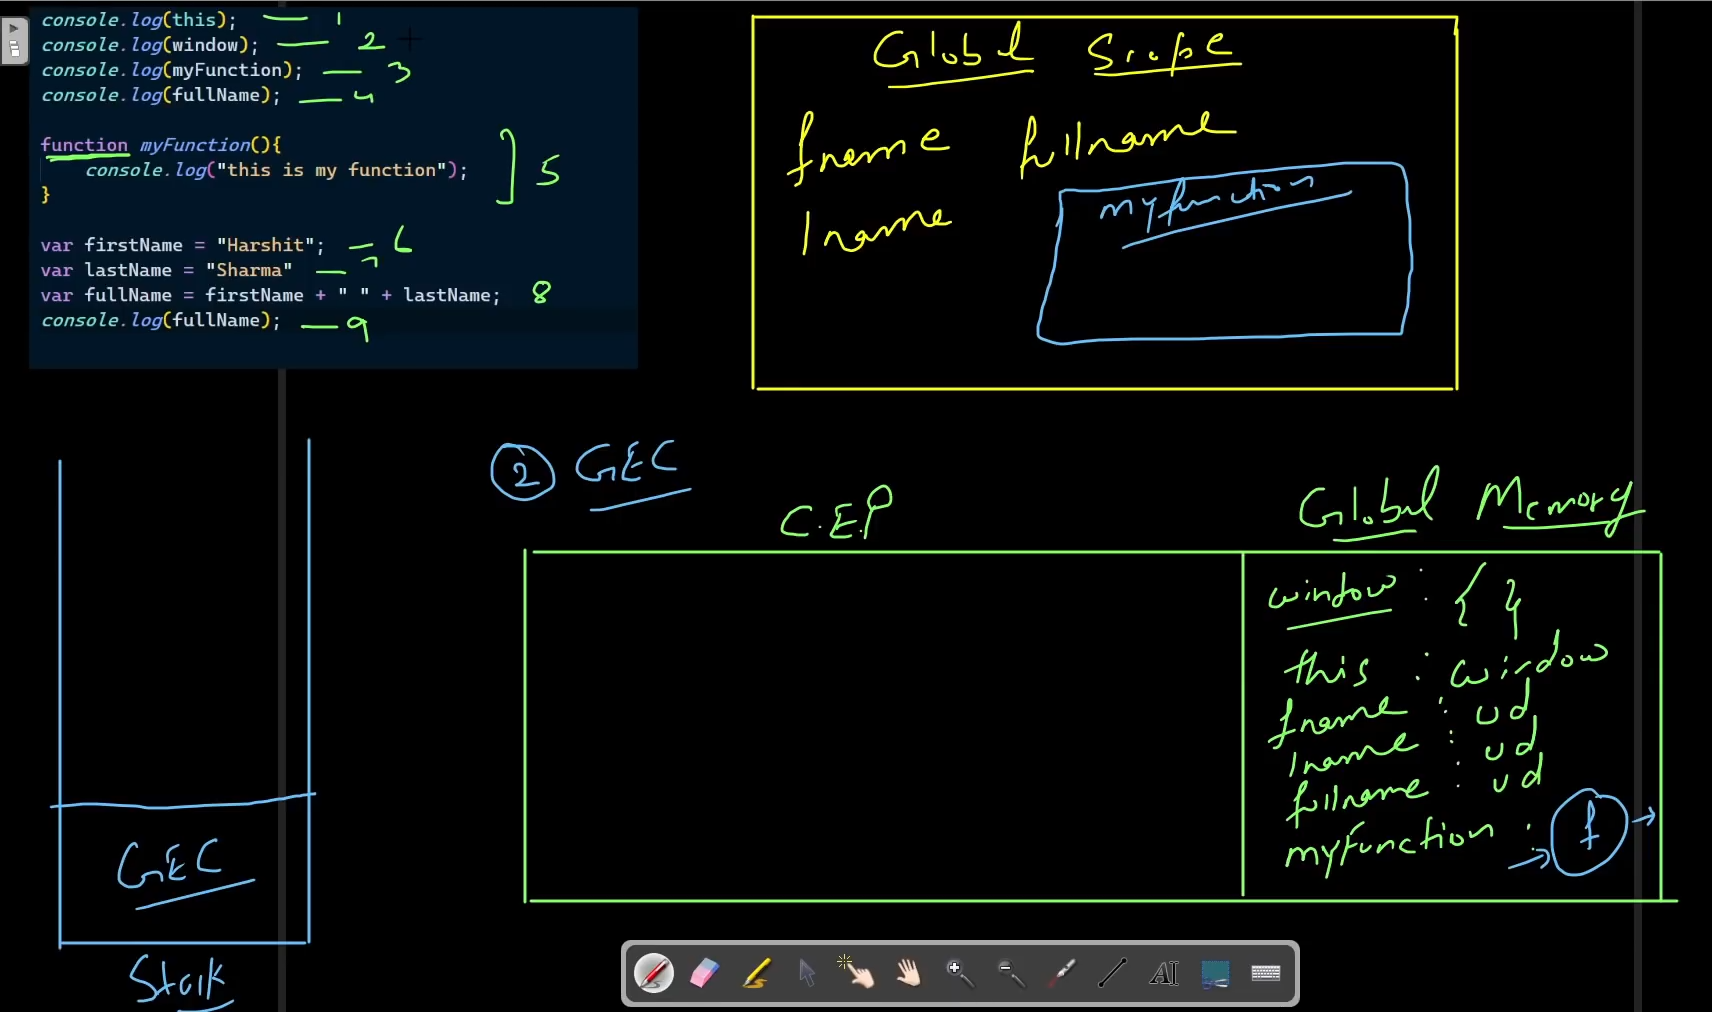 console.log(this); 1
console.log(window); 2
console.log(myFunction); 3
console.log(fullName); 4
function myFunction(){
console.log("this is my function");
} 5
var firstName = "Harshit"; 6
var lastName = "Sharma" 7
var fullName = firstName + " " + lastName; 8
console.log(fullName); 9
Global Scope
fname fullname
lname
myfunction
2 GEC
C.E.P
Global Memory
window : { }
this : window
fname : ud
lname : ud
fullname : ud
myFunction : f
GEC
Stack
AI